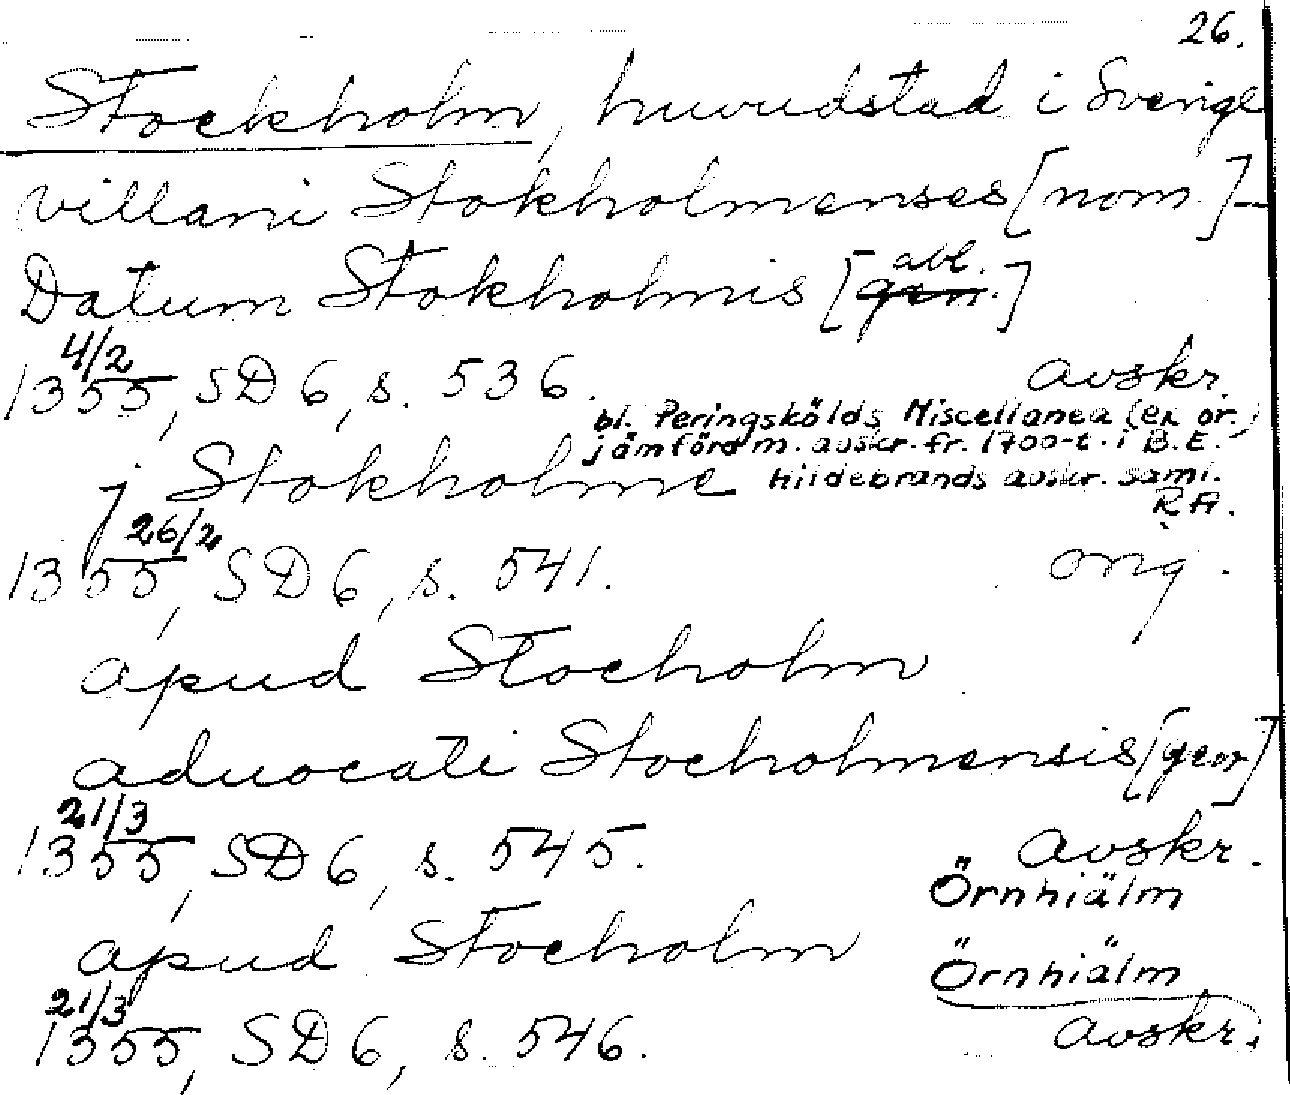 26.
Stockholm, huvudstad i Sverige
villani Stokholmenses [nom.] –
Datum Stokholmis [gen. abl.]
1355 4/2, SD 6, s. 536. avskr.
bl. Peringskölds Miscellanea (ex or.)
jämförd m. avskr. fr. 1700-t. i B.E.
Hildebrands avskr. saml.
RA.
j Stokholme
1355 26/2, SD 6, s. 541. orig.
apud Stocholm
aduocati Stocholmensis [gen]
1355 21/3, SD 6, s. 545. avskr.
Örnhiälm
apud Stocholm
Örnhiälm
1355 21/3, SD 6, s. 546. avskr.